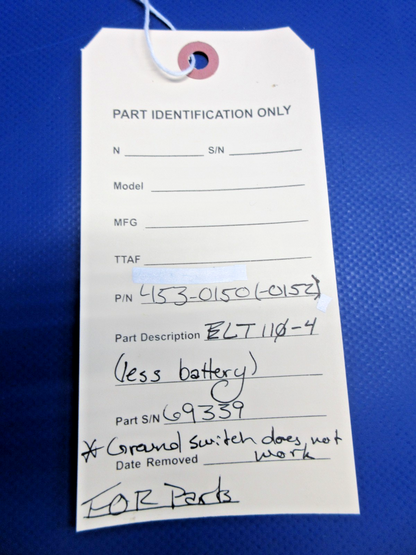 PART IDENTIFICATION ONLY
N S/N
Model
MFG
TTAF
P/N 453-0150(-0152)
Part Description ELT 110-4
(less battery)
Part S/N 69339
* Ground switch does not
Date Removed work
FOR Parts